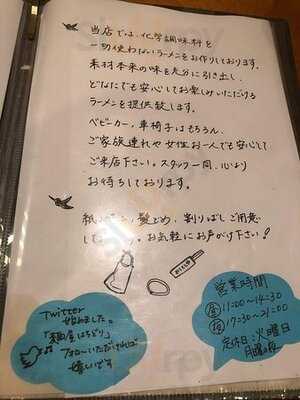 当店では、化学調味料を
一切使わないラーメンをお作りしております。
素材本来の味を充分に引き出し、
どなたでも安心してお楽しみいただける
ラーメンを提供致します。
ベビーカー、車椅子はもちろん、
ご家族連れや女性お一人でも安心して
ご来店下さい。スタッフ一同、心より
お待ちしております。
紙 髪どめ、割りばしご用意
し お気軽にお声がけ下さい！
Twitter
始めました。
「麺屋はちどり」
フォローいただければ
嬉しいです
営業時間
昼 11:00〜14:30
夜 17:30〜21:00
定休日:火曜日
月曜の夜